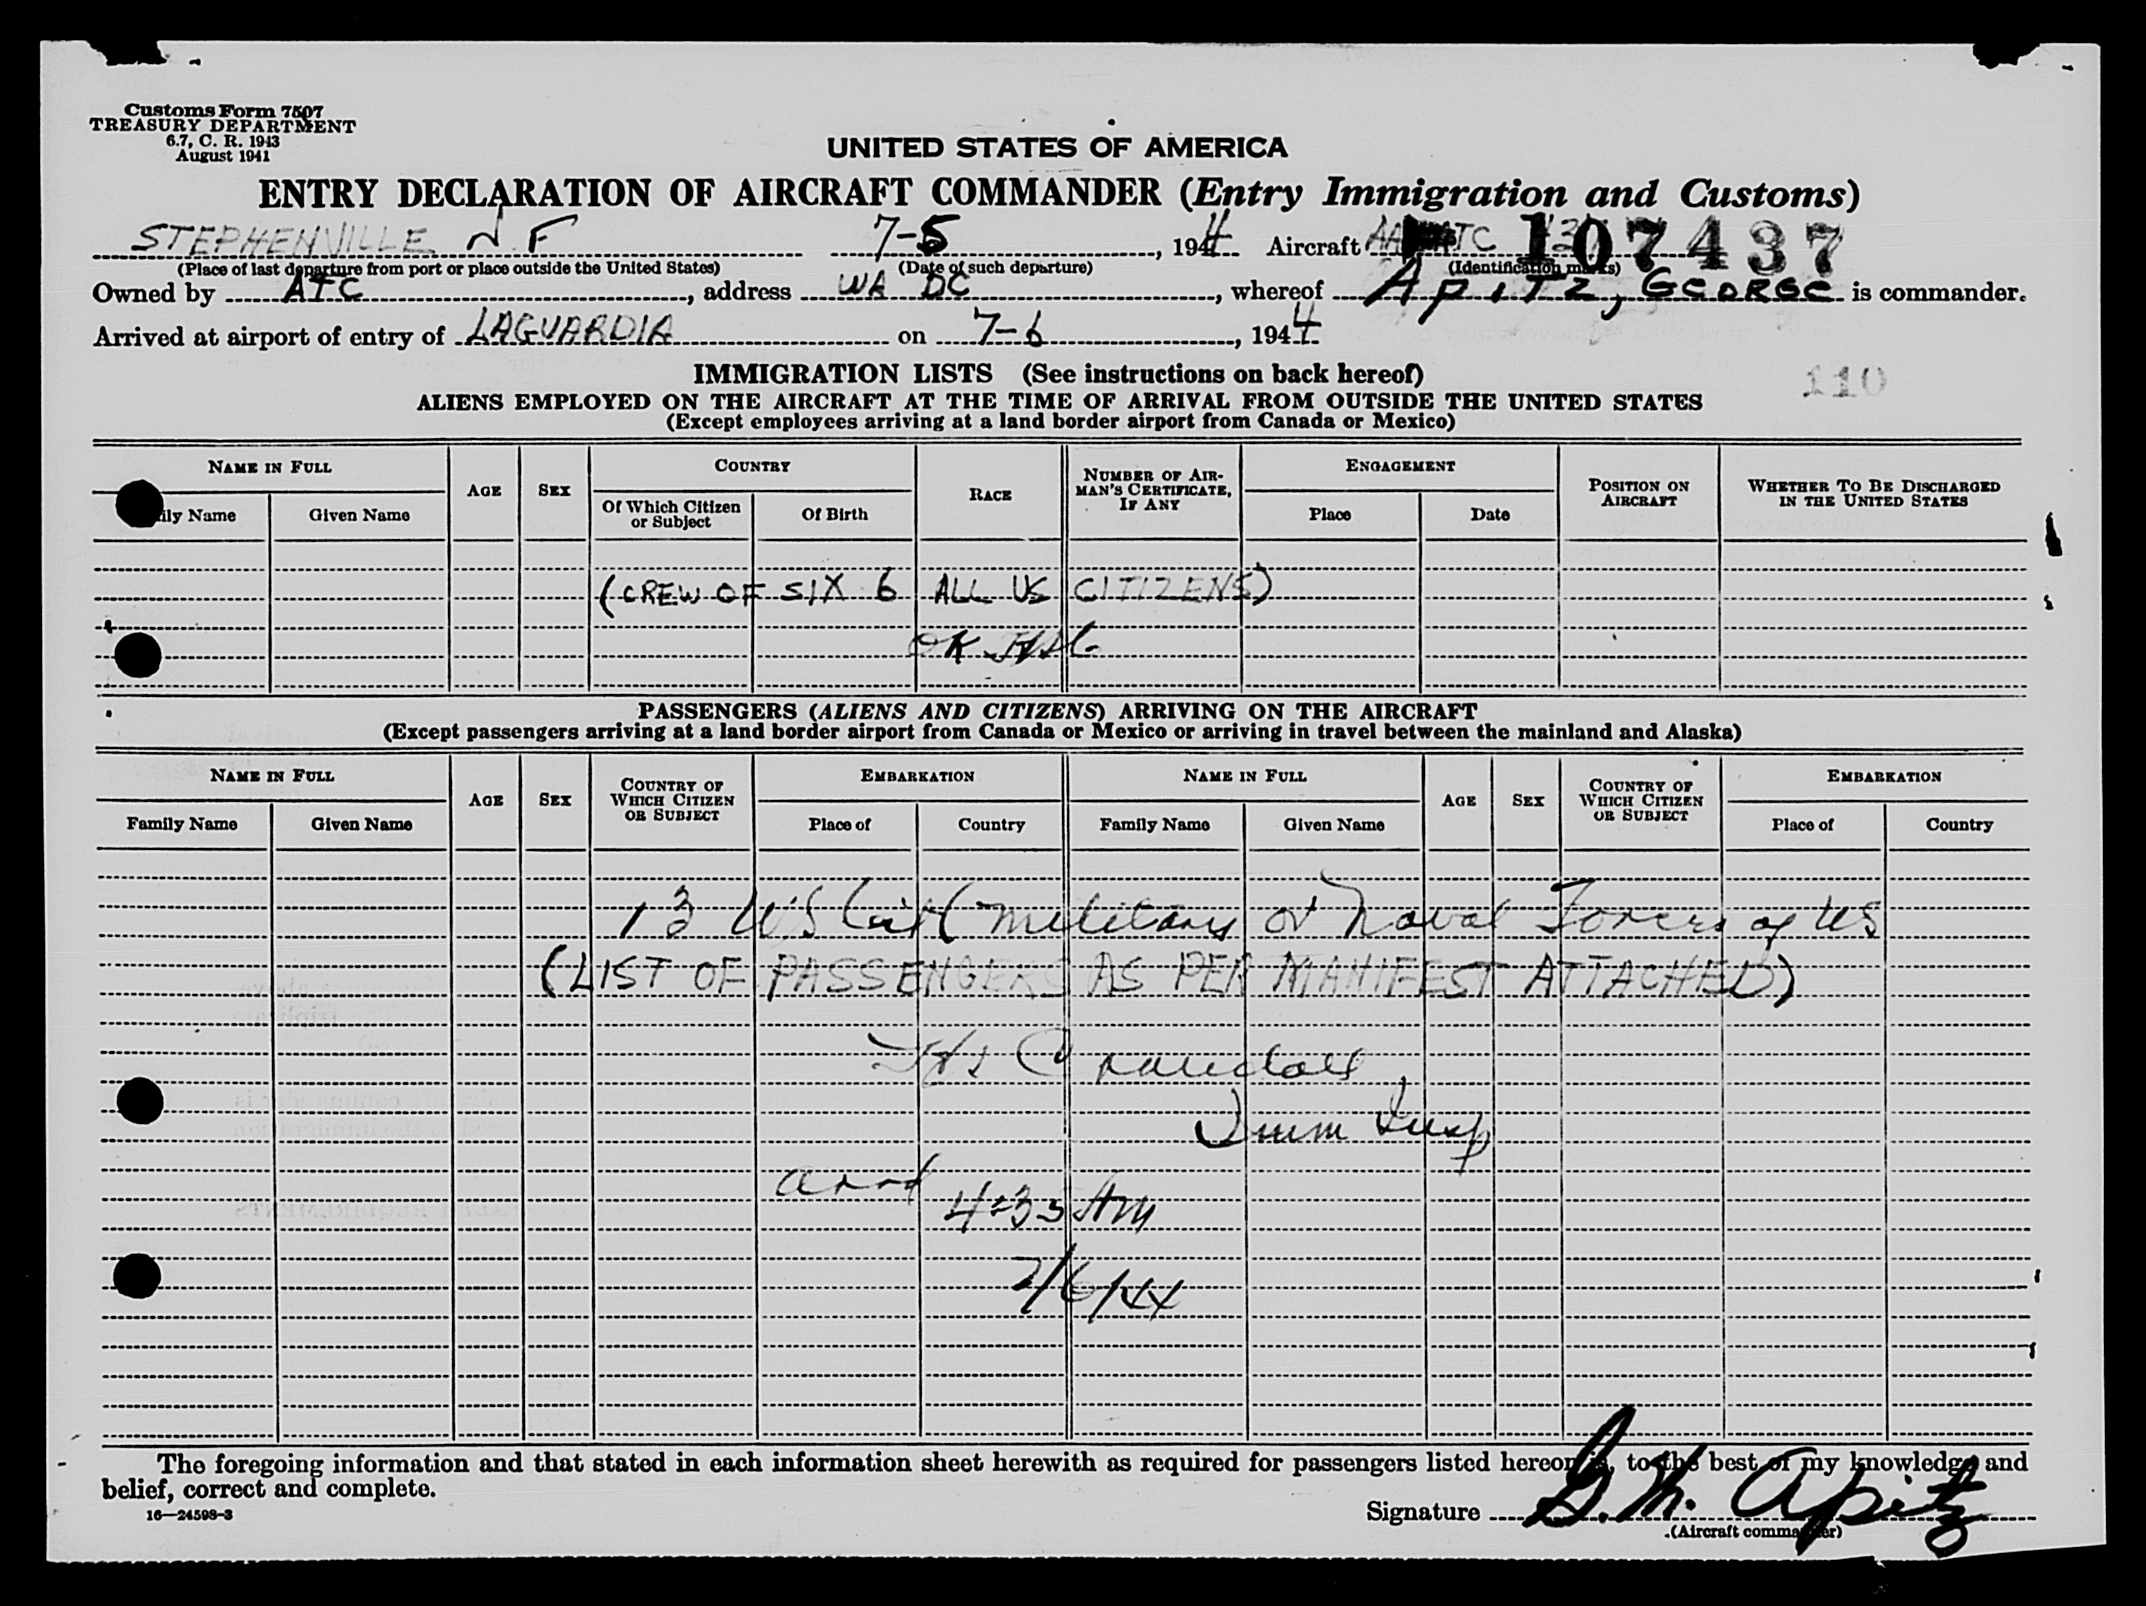 Customs Form 7507
TREASURY DEPARTMENT
6.7, C. R. 1943
August 1941
UNITED STATES OF AMERICA
ENTRY DECLARATION OF AIRCRAFT COMMANDER (Entry Immigration and Customs)
STEPHENVILLE N F 7-5, 1944 Aircraft 107437
(Place of last departure from port or place outside the United States) (Date of such departure) (Identification marks)
Owned by ATC, address WA DC, whereof APITZ, GEORGE is commander.
Arrived at airport of entry of LAGUARDIA on 7-6, 1944
110
IMMIGRATION LISTS (See instructions on back hereof)
ALIENS EMPLOYED ON THE AIRCRAFT AT THE TIME OF ARRIVAL FROM OUTSIDE THE UNITED STATES
(Except employees arriving at a land border airport from Canada or Mexico)
NAME IN FULL AGE SEX COUNTRY RACE NUMBER OF AIRMAN'S CERTIFICATE, IF ANY ENGAGEMENT POSITION ON AIRCRAFT WHETHER TO BE DISCHARGED IN THE UNITED STATES
ily Name Given Name Of Which Citizen or Subject Of Birth Place Date
(CREW OF SIX 6 ALL US CITIZENS)
OK
PASSENGERS (ALIENS AND CITIZENS) ARRIVING ON THE AIRCRAFT
(Except passengers arriving at a land border airport from Canada or Mexico or arriving in travel between the mainland and Alaska)
NAME IN FULL AGE SEX COUNTRY OF WHICH CITIZEN OR SUBJECT EMBARKATION NAME IN FULL AGE SEX COUNTRY OF WHICH CITIZEN OR SUBJECT EMBARKATION
Family Name Given Name Place of Country Family Name Given Name Place of Country
13 US Cit (Military or Naval Forces of US
(LIST OF PASSENGERS AS PER MANIFEST ATTACHED)
Crandall
Imm Insp
arrd 4:35 AM
7/6/44
The foregoing information and that stated in each information sheet herewith as required for passengers listed hereon is, to the best of my knowledge and
belief, correct and complete.
16—24598-3
Signature G. M. Apitz
(Aircraft commander)